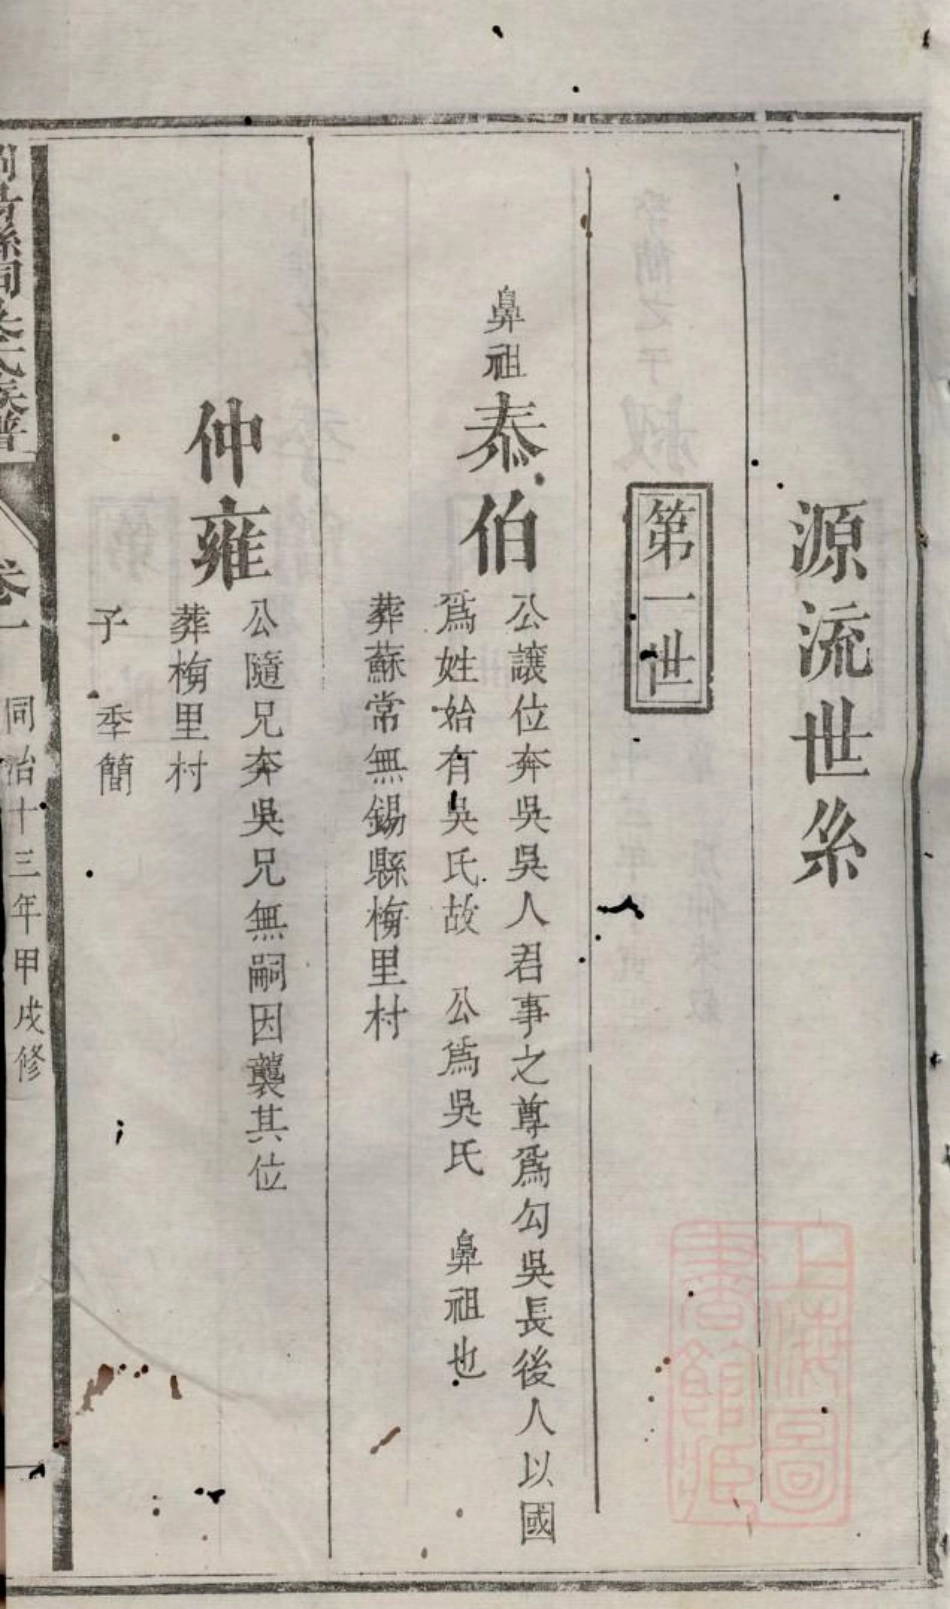 源流世系
第一世
鼻祖
泰伯
公讓位奔吳吳人君事之尊爲勾吳長後人以國
爲姓始有吳氏故 公爲吳氏 鼻祖也
葬蘇常無錫縣梅里村
仲雍
公隨兄奔吳兄無嗣因襲其位
葬梅里村
子 季簡
氏族譜
卷一
同治十三年甲戌修
上海圖書館藏